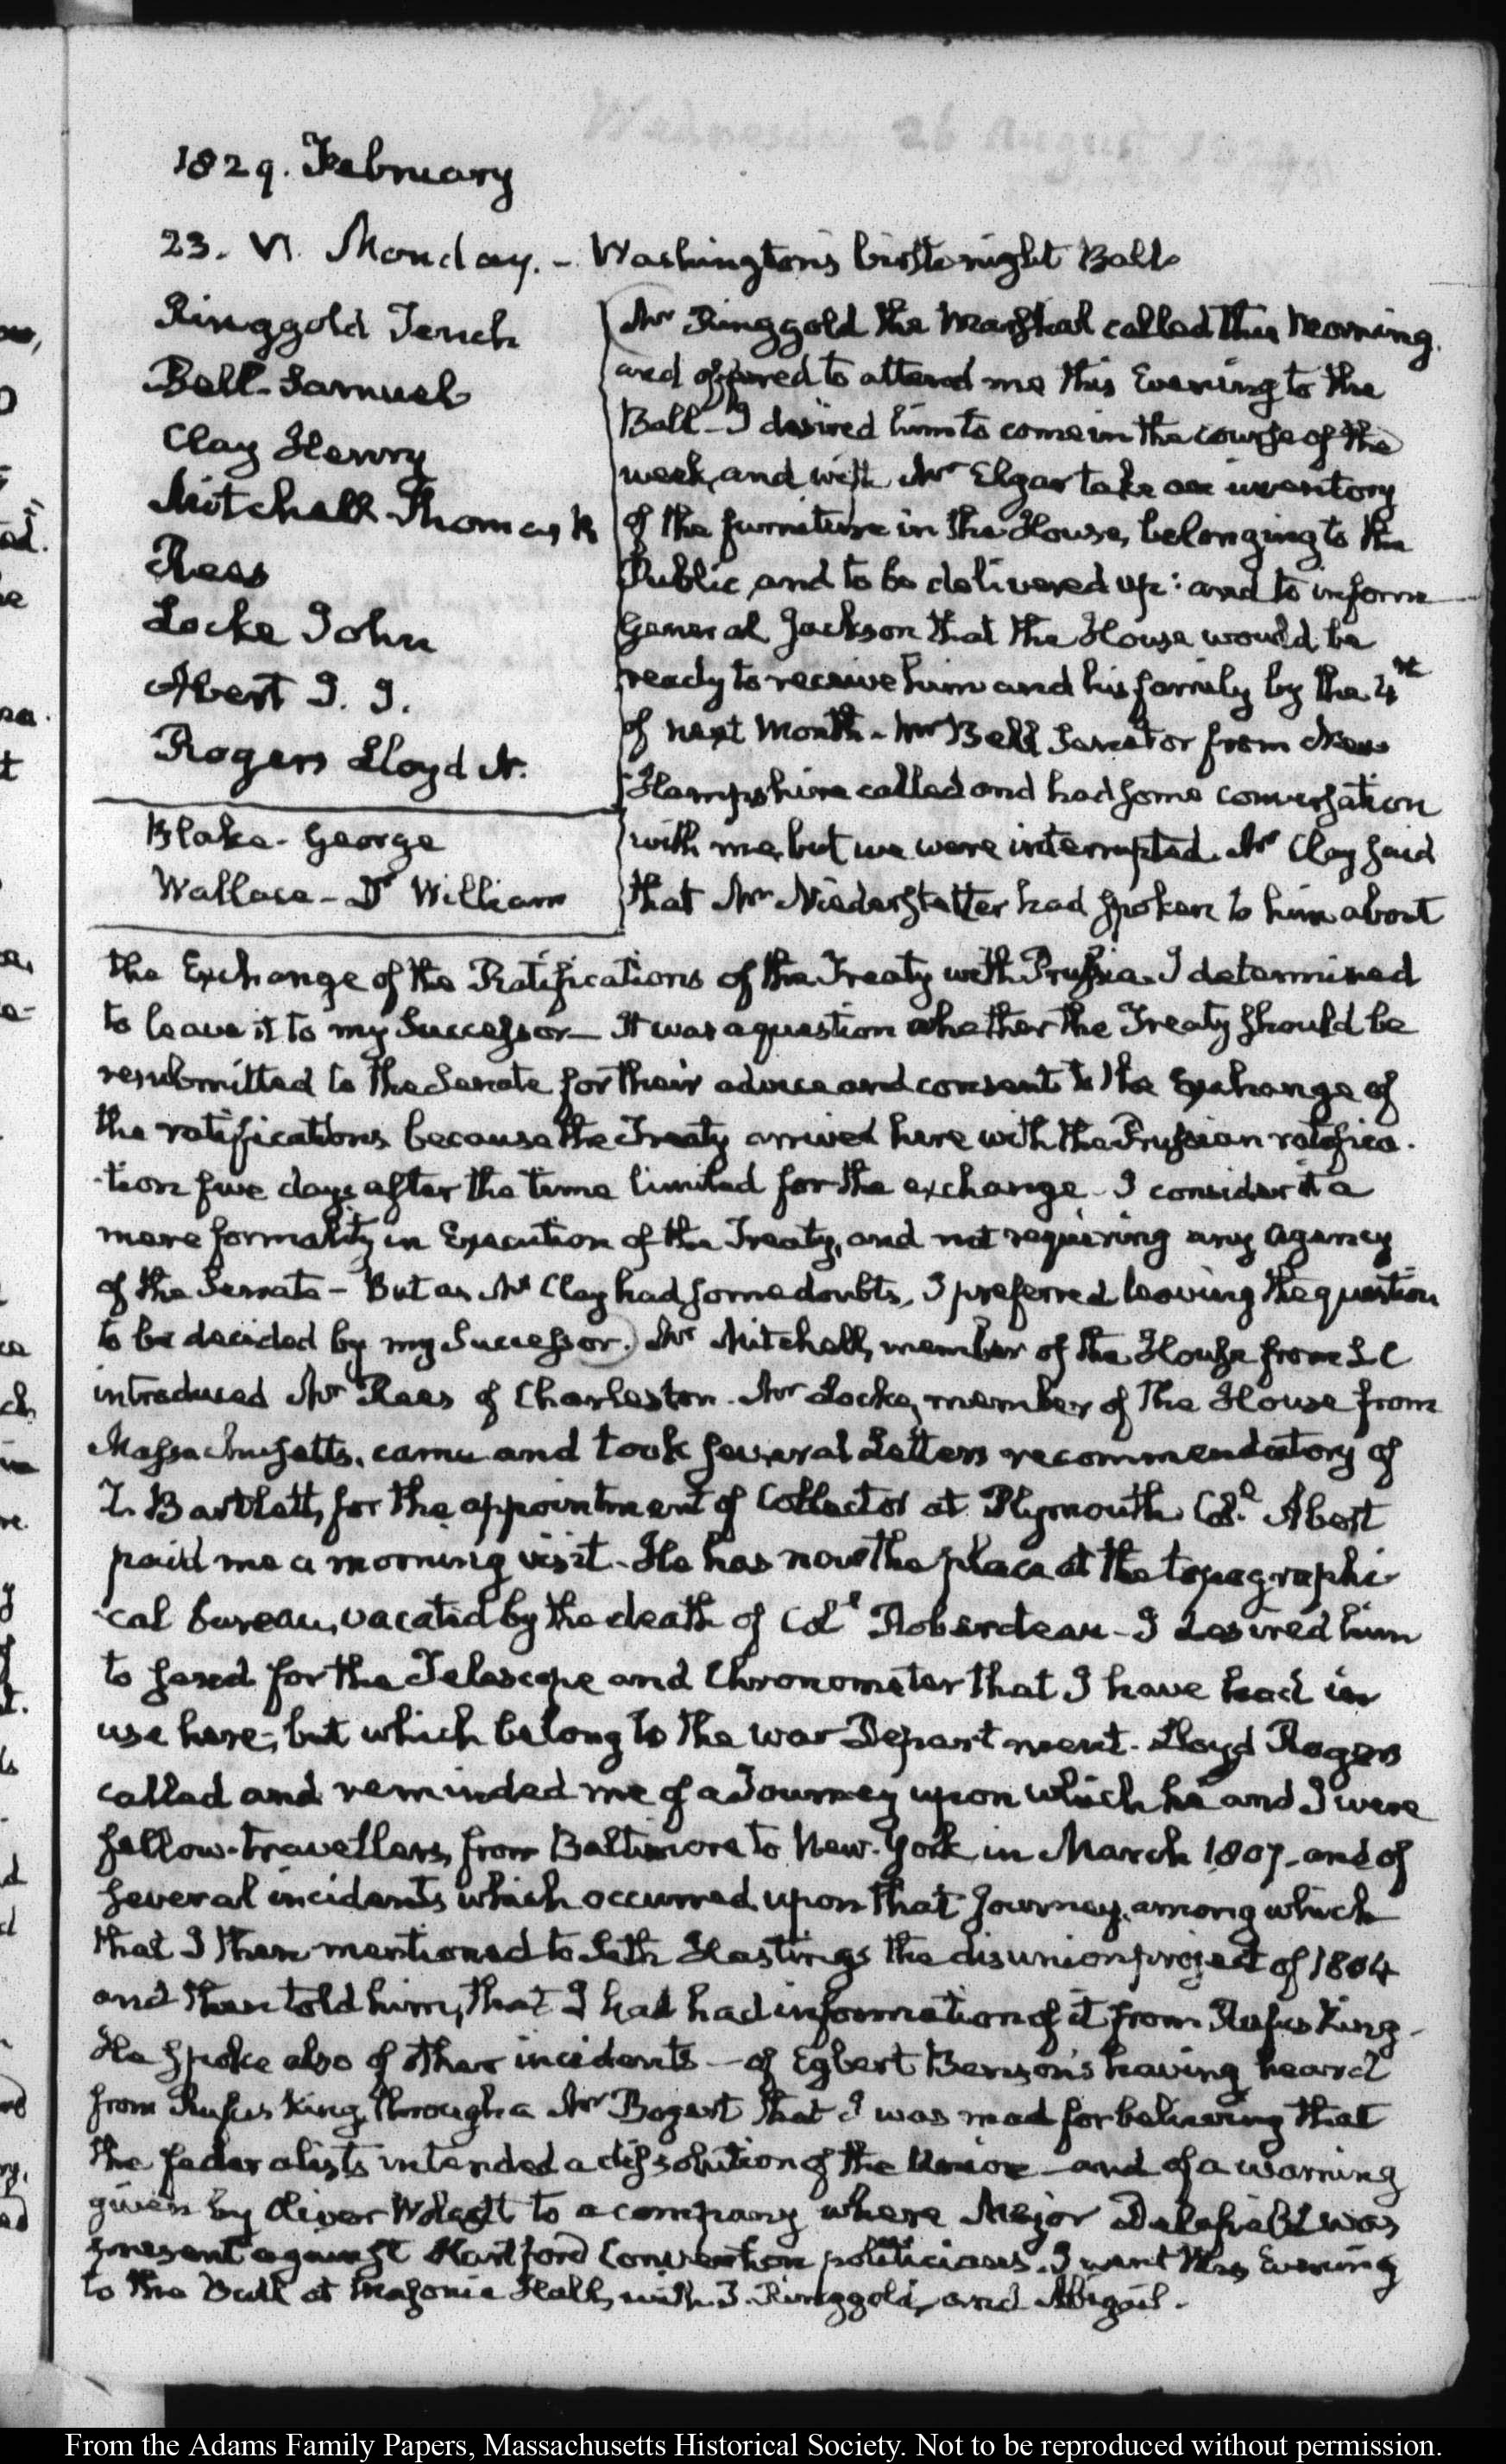 1829. February
23. VI. Monday. - Washington's birth night Ball
Ringgold Tench
Bell Samuel
Clay Henry
Mitchell Thomas R
Rees
Locke John
Abert J. J.
Rogers Lloyd N.
Blake - George
Wallace - Dr William
Mr Ringgold the Marshal called this Morning,
and offered to attend me this Evening to the
Ball - I desired him to come in the course of the
week, and with Mr Elgar take an inventory
of the furniture in the House, belonging to the
Public, and to be delivered up: and to inform
General Jackson that the House would be
ready to receive him and his family by the 4th
of next Month - Mr Bell Senator from New
Hampshire called and had some conversation
with me, but we were interrupted. Mr Clay said
that Mr Niederstetter had spoken to him about
the Exchange of the Ratifications of the Treaty with Prussia. I determined
to leave it to my Successor - It was a question whether the Treaty should be
resubmitted to the Senate for their advice and consent to the Exchange of
the ratifications because the Treaty arrived here with the Prussian ratifica-
tion five days after the time limited for the exchange - I consider it a
mere formality in Execution of the Treaty, and not requiring any agency
of the Senate - But as Mr Clay had some doubts, I preferred leaving the question
to be decided by my Successor. Mr Mitchell, member of the House from S C
introduced Mr Rees of Charleston. Mr Locke, member of the House from
Massachusetts, came and took several Letters recommendatory of
Z. Bartlett, for the appointment of Collector at Plymouth. Col. Abert
paid me a morning visit - He has now the place at the topographi-
cal bureau, vacated by the death of Coll Roberdeau - I desired him
to send for the Telescope and Chronometer that I have had in
use here; but which belong to the War Department. Lloyd Rogers
called and reminded me of a Journey upon which he and I were
fellow-travellers, from Baltimore to New-York in March 1807 - and of
several incidents which occurred upon that journey, among which
that I then mentioned to Seth Hastings the disunion project of 1804
and then told him, that I had had information of it from Rufus King -
He spoke also of other incidents - of Egbert Benson's having heard
from Rufus King, through a Mr Bogert that I was mad for believing that
the federalists intended a dissolution of the Union - and of a warning
given by Oliver Wolcott to a company where Major Delafield was
present against Hartford Convention politicians. I went this Evening
to the Ball at Masonic Hall, with T. Ringgold, and Abigail.
From the Adams Family Papers, Massachusetts Historical Society. Not to be reproduced without permission.